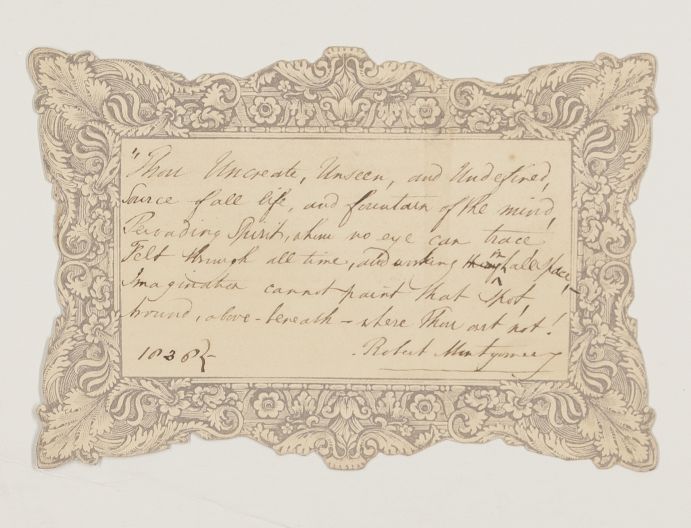 "Thou Uncreate, Unseen, and Undefined,
Source of all life, and fountain of the mind,
Pervading Spirit, whom no eye can trace
Felt through all time, and working in all space,
Imagination cannot paint that spot,
Around, above - beneath - where Thou art not!
1838
Robert Montgomery